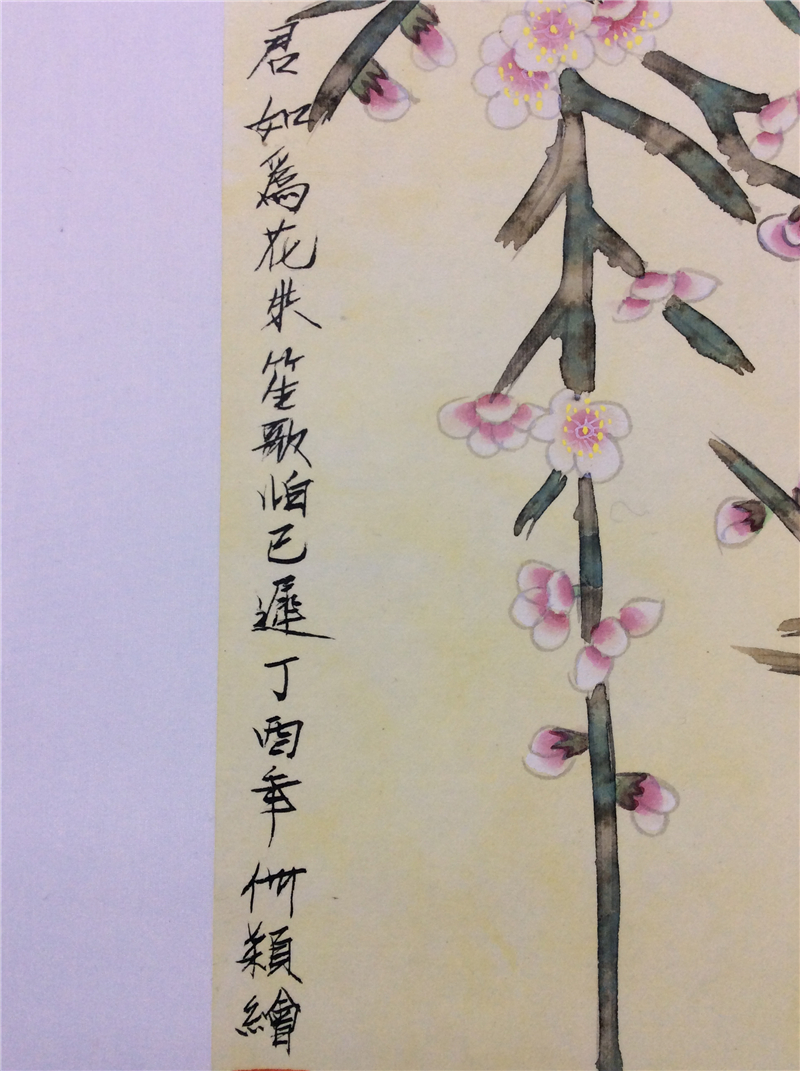 君如爲花來笙歌怕已遲丁酉年 穎繪